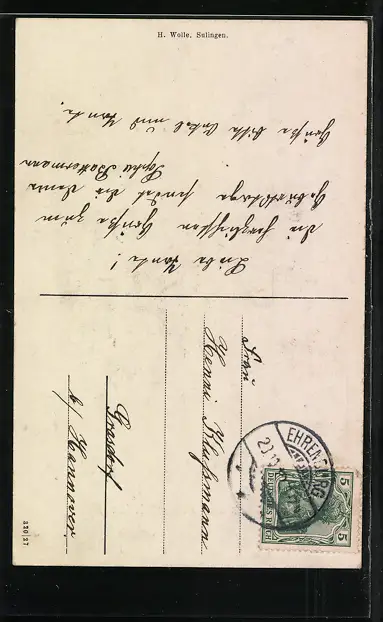 H. Wolle, Sulingen.
Liebe Tante!
Die herzlichsten Grüße zum
Geburtstage sendet Dir Deine
Sophie Battermann
Grüße bitte Onkel und Tante.
Frau
Henni
Grasdorf
b/ Hannover.
EHRENBURG
5 5
DEUTSCHES REICH
350|27